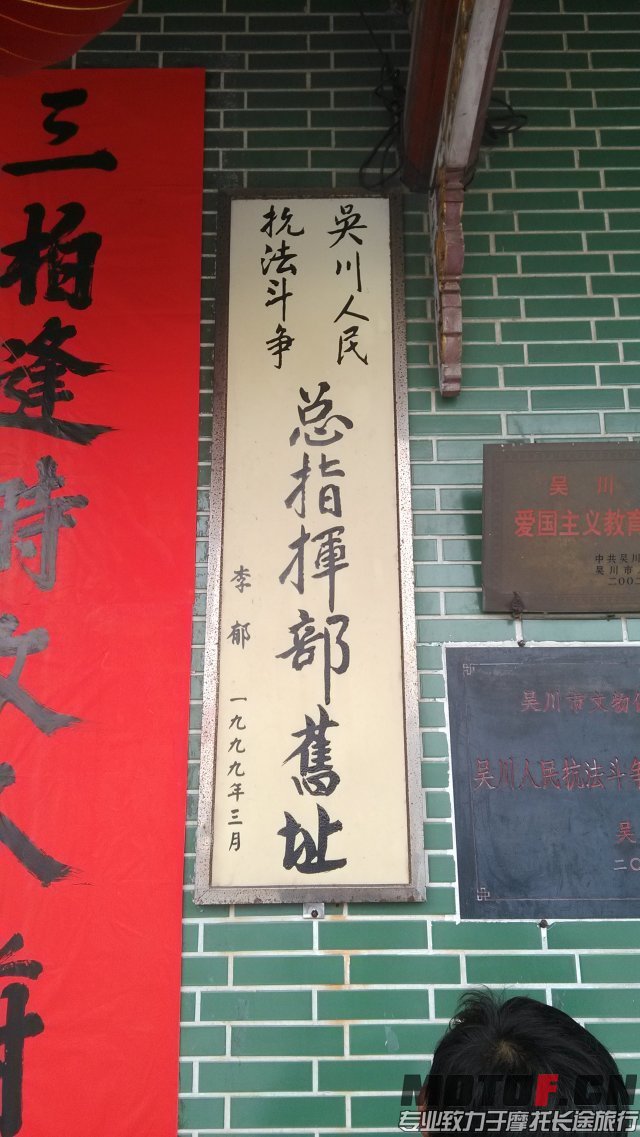 三柏逢時
吳川人民
抗法斗争
总指揮部舊址
李郁
一九九九年三月
吴川
爱国主义教育
中共吴川
吴川市
二〇〇二
吴川市文物
吴川人民抗法斗争
吴
二〇
MOTOF.CN
专业致力于摩托长途旅行